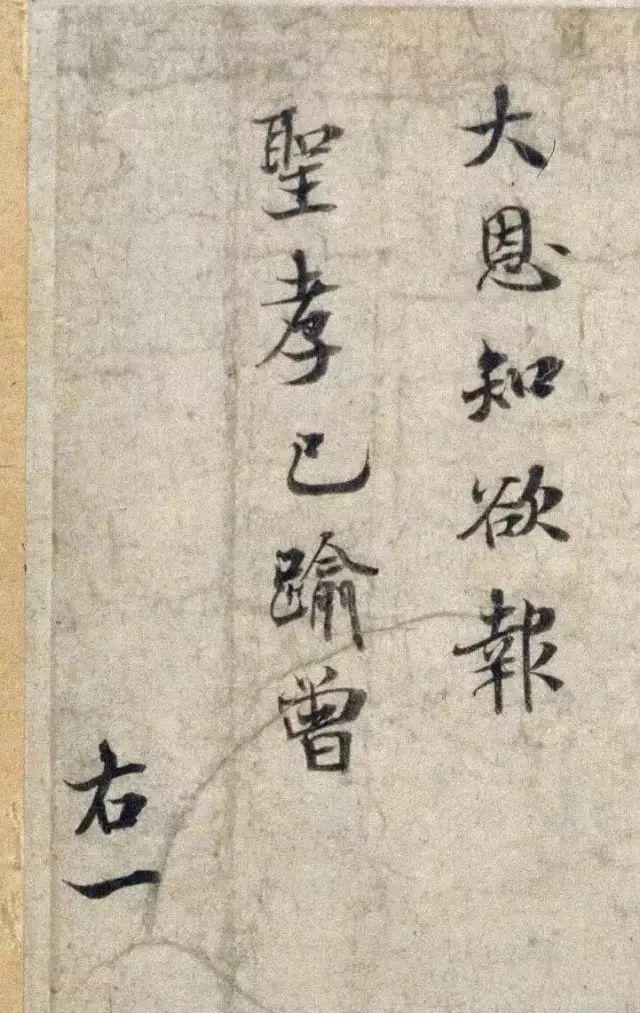 大恩知欲報
聖孝已踰曾
右一